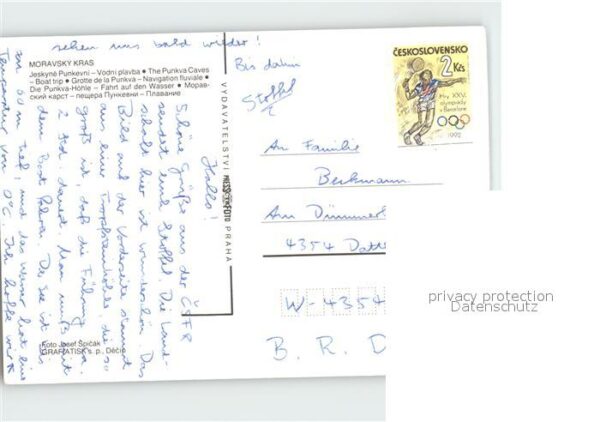 MORAVSKÝ KRAS
Jeskyně Punkevní – Vodní plavba • The Punkva Caves
– Boat trip • Grotte de la Punkva – Navigation fluviale •
Die Punkva-Höhle – Fahrt auf den Wasser •Морав-
ский карст – пещера Пункевни – Плавание
Hallo!
Schöne Grüße aus der ČSFR
sendet euch Stoffel. Die Land-
schaft hier ist wunderschön. Das
Bild auf der Vorderseite stammt
aus einer Tropfsteinhöhle, die so
groß ist, daß die Führung ca.
2 Std. dauert. Man muß mit
dem Boot fahren. Der See ist bis
zu 50 m tief, und das Wasser hat eine
Temperatur von 0°C. Ich hoffe wir
sehen uns bald wieder!
Bis dahin
Stoffel
Foto Josef Špičák
GRAFATISK s. p., Děčín
VYDAVATELSTVÍ PRESSFOTO PRAHA
ČESKOSLOVENSKO
2 Kčs
Hry XXV.
olympiády
v Barceloně
1992
An Familie
Beckmann
Am Dümmer
4354 Datt
W-4354
B. R. D
privacy protection
Datenschutz